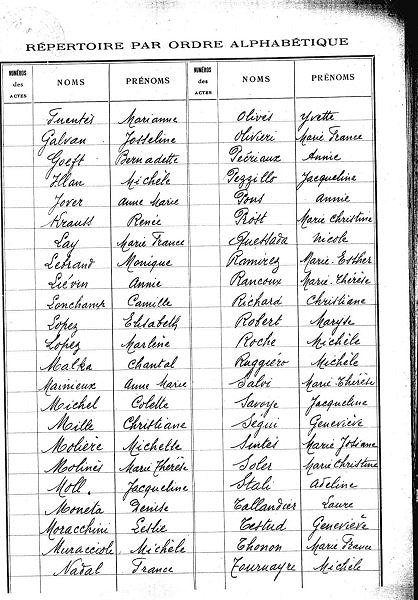 RÉPERTOIRE PAR ORDRE ALPHABÉTIQUE
NUMÉROS des ACTES NOMS PRÉNOMS NUMÉROS des ACTES NOMS PRÉNOMS
Fuentes Marianne Olivès Yvette
Galvan Josseline Olivieri Marie France
Goeft Bernadette Périaux Annie
Illan Michèle Pezzillo Jacqueline
Jover Anne Marie Pons Annie
Krauss Renée Prost Marie Christine
Lay Marie France Quessada Nicole
Letrand Monique Ramirez Marie-Esther
Liévin Annie Rancoux Marie-Thérèse
Lonchamp Camille Richard Christiane
Lopez Elisabeth Robert Maryse
Lopez Marlène Roche Michèle
Malka Chantal Ruggiero Michèle
Mainieux Anne Marie Salvi Marie Thérèse
Michel Colette Savoye Jacqueline
Mille Christiane Ségui Geneviève
Molière Michelle Sintès Marie Josiane
Molinès Marie Thérèse Soler Marie Christine
Moll. Jacqueline Stali Adeline
Moneta Denise Tallandier Laure
Moracchini Leslie Testud Geneviève
Muracciole Michèle Thonon Marie France
Nadal France Tournayre Michèle